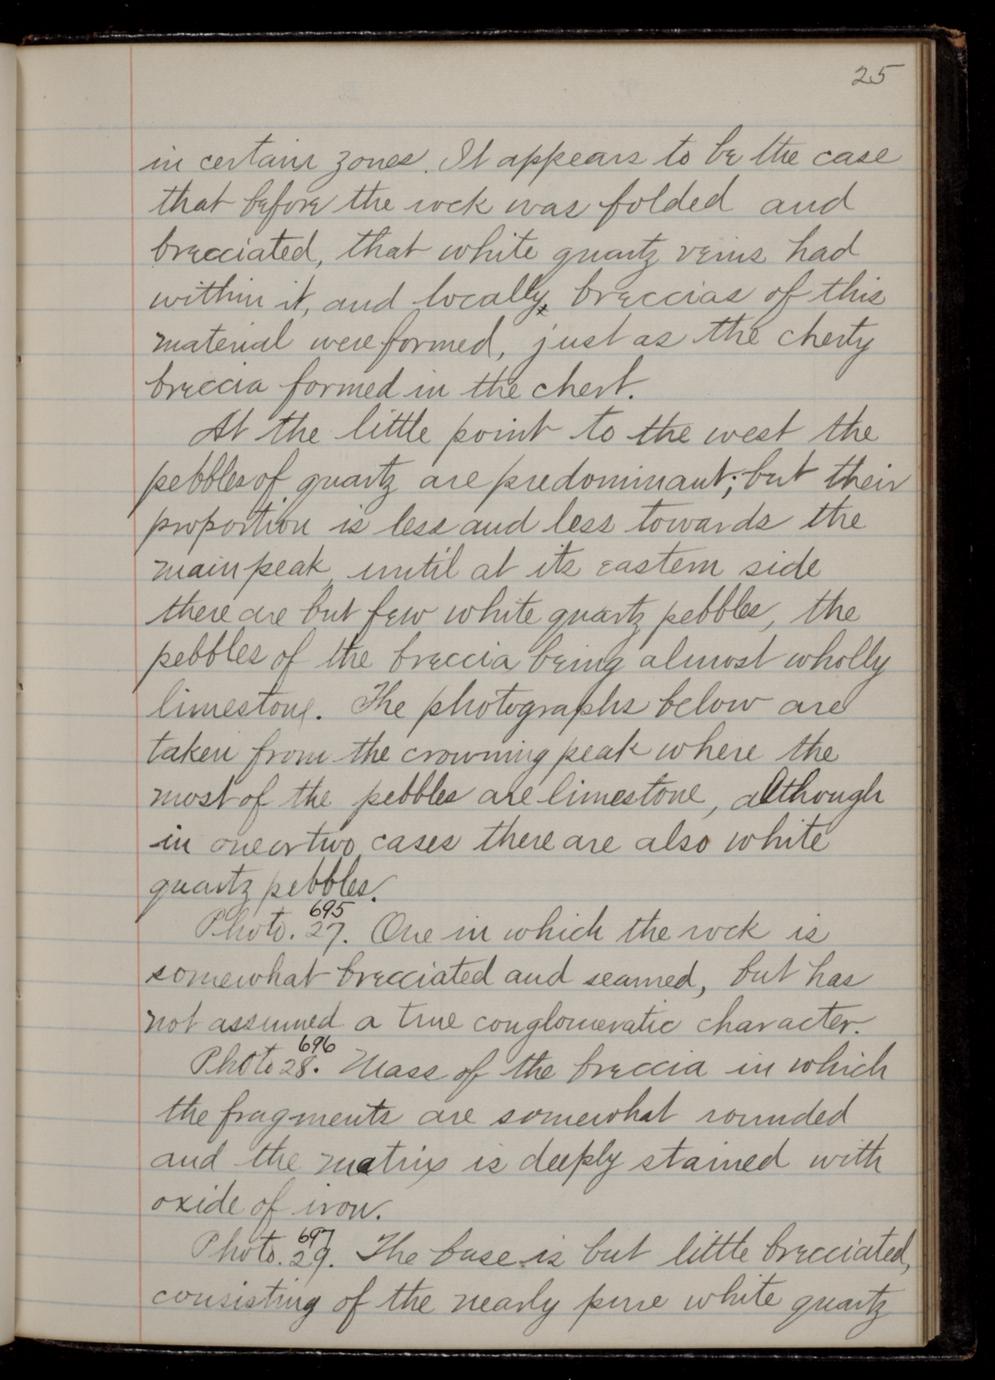 25
in certain zones. It appears to be the case
that before the rock was folded and
brecciated, that white quartz veins had
within it, and locally, breccias of this
material were formed, just as the cherty
breccia formed in the chert.
At the little point to the west the
pebbles of quartz are predominant; but their
proportion is less and less towards the
main peak, until at its eastern side
there are but few white quartz pebbles, the
pebbles of the breccia being almost wholly
limestone. The photographs below are
taken from the crowning peak where the
most of the pebbles are limestone, although
in one or two cases there are also white
quartz pebbles.
695
Photo. 27. One in which the rock is
somewhat brecciated and seamed, but has
not assumed a true conglomeratic character.
696
Photo 28. Mass of the breccia in which
the fragments are somewhat rounded
and the matrix is deeply stained with
oxide of iron.
697
Photo. 29. The base is but little brecciated,
consisting of the nearly pure white quartz